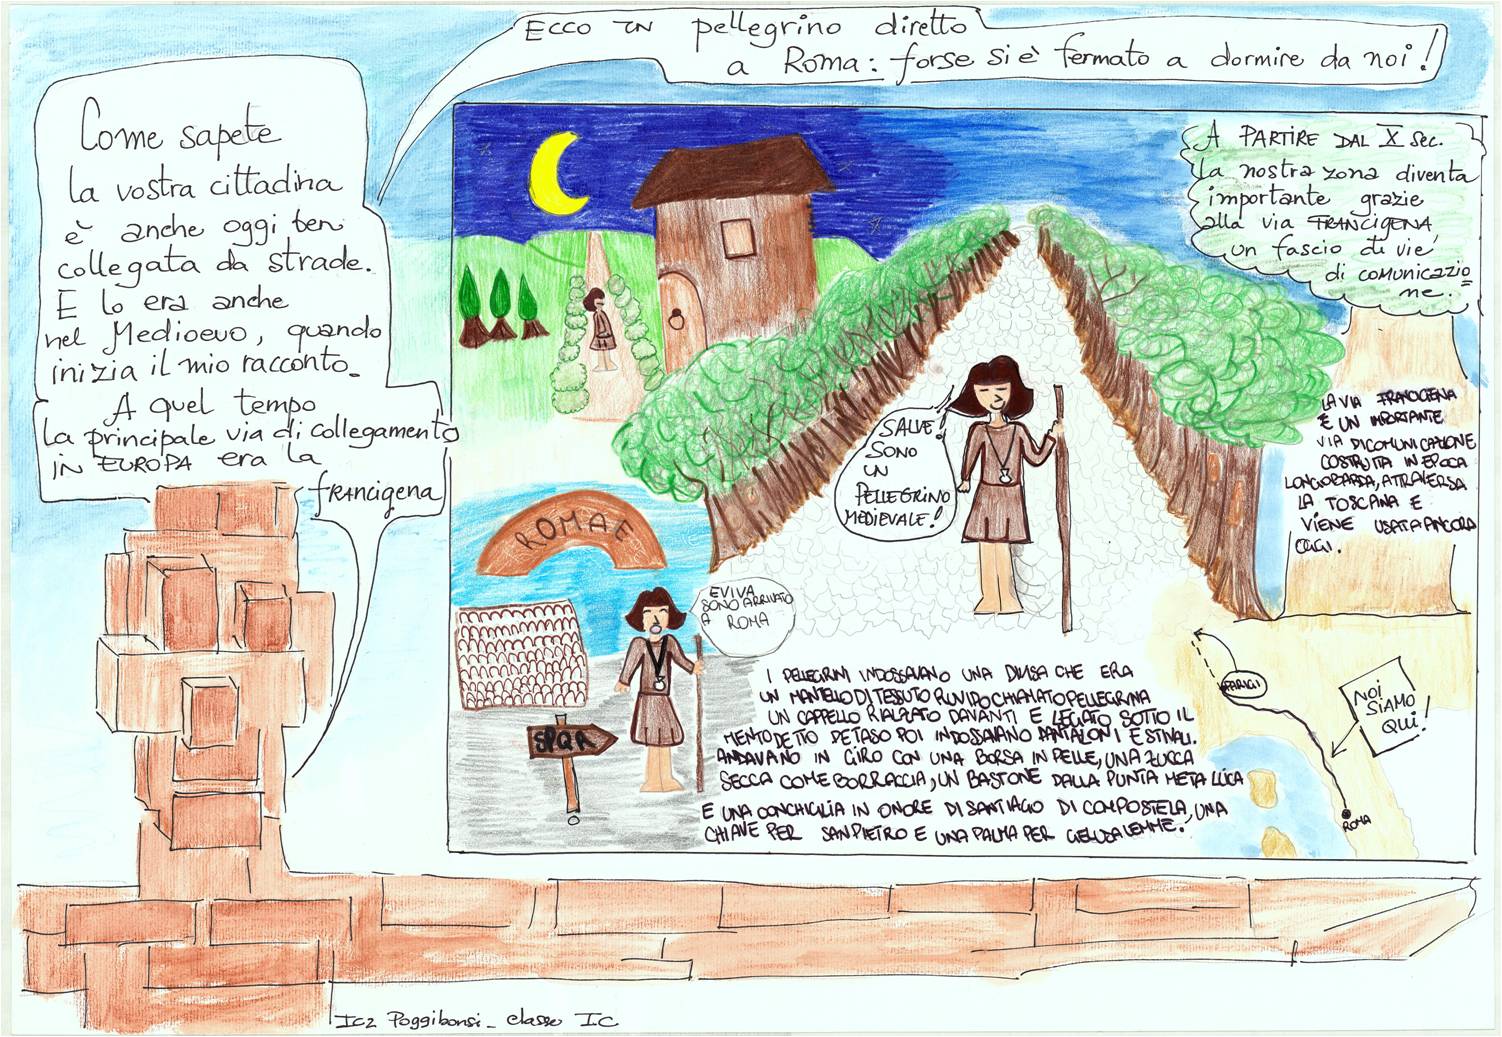 Ecco un pellegrino diretto
a Roma: forse si è fermato a dormire da noi!
Come sapete
la vostra cittadina
è anche oggi ben
collegata da strade.
E lo era anche
nel Medioevo, quando
inizia il mio racconto.
A quel tempo
la principale via di collegamento
in EUROPA era la
francigena
A PARTIRE DAL X sec.
la nostra zona diventa
importante grazie
alla via FRANCIGENA,
un fascio di vie
di comunicazio=
ne.
LA VIA FRANCIGENA
È UN IMPORTANTE
VIA DI COMUNICAZIONE
COSTRUITA IN EPOCA
LONGOBARDA, ATTRAVERSA
LA TOSCANA E
VIENE USATA ANCORA
OGGI.
SALVE!
SONO
UN
PELLEGRINO
MEDIEVALE!
ROMAE
EVIVA
SONO ARRIVATO
A ROMA
SPQR
I PELLEGRINI INDOSSAVANO UNA DIVISA CHE ERA
UN MANTELLO DI TESSUTO RUVIDO CHIAMATO PELLEGRINA
UN CAPPELLO RIALZATO DAVANTI E LEGATO SOTTO IL
MENTO DETTO PETASO POI INDOSSAVANO PANTALONI E STIVALI.
ANDAVANO IN GIRO CON UNA BORSA IN PELLE, UNA ZUCCA
SECCA COME BORRACCIA, UN BASTONE DALLA PUNTA METALLICA
E UNA CONCHIGLIA IN ONORE DI SANTIAGO DI COMPOSTELA, UNA
CHIAVE PER SAN PIETRO E UNA PALMA PER GERUSALEMME.
PARIGI
NOI
SIAMO
QUI!
ROMA
IC2 Poggibonsi - classe I C